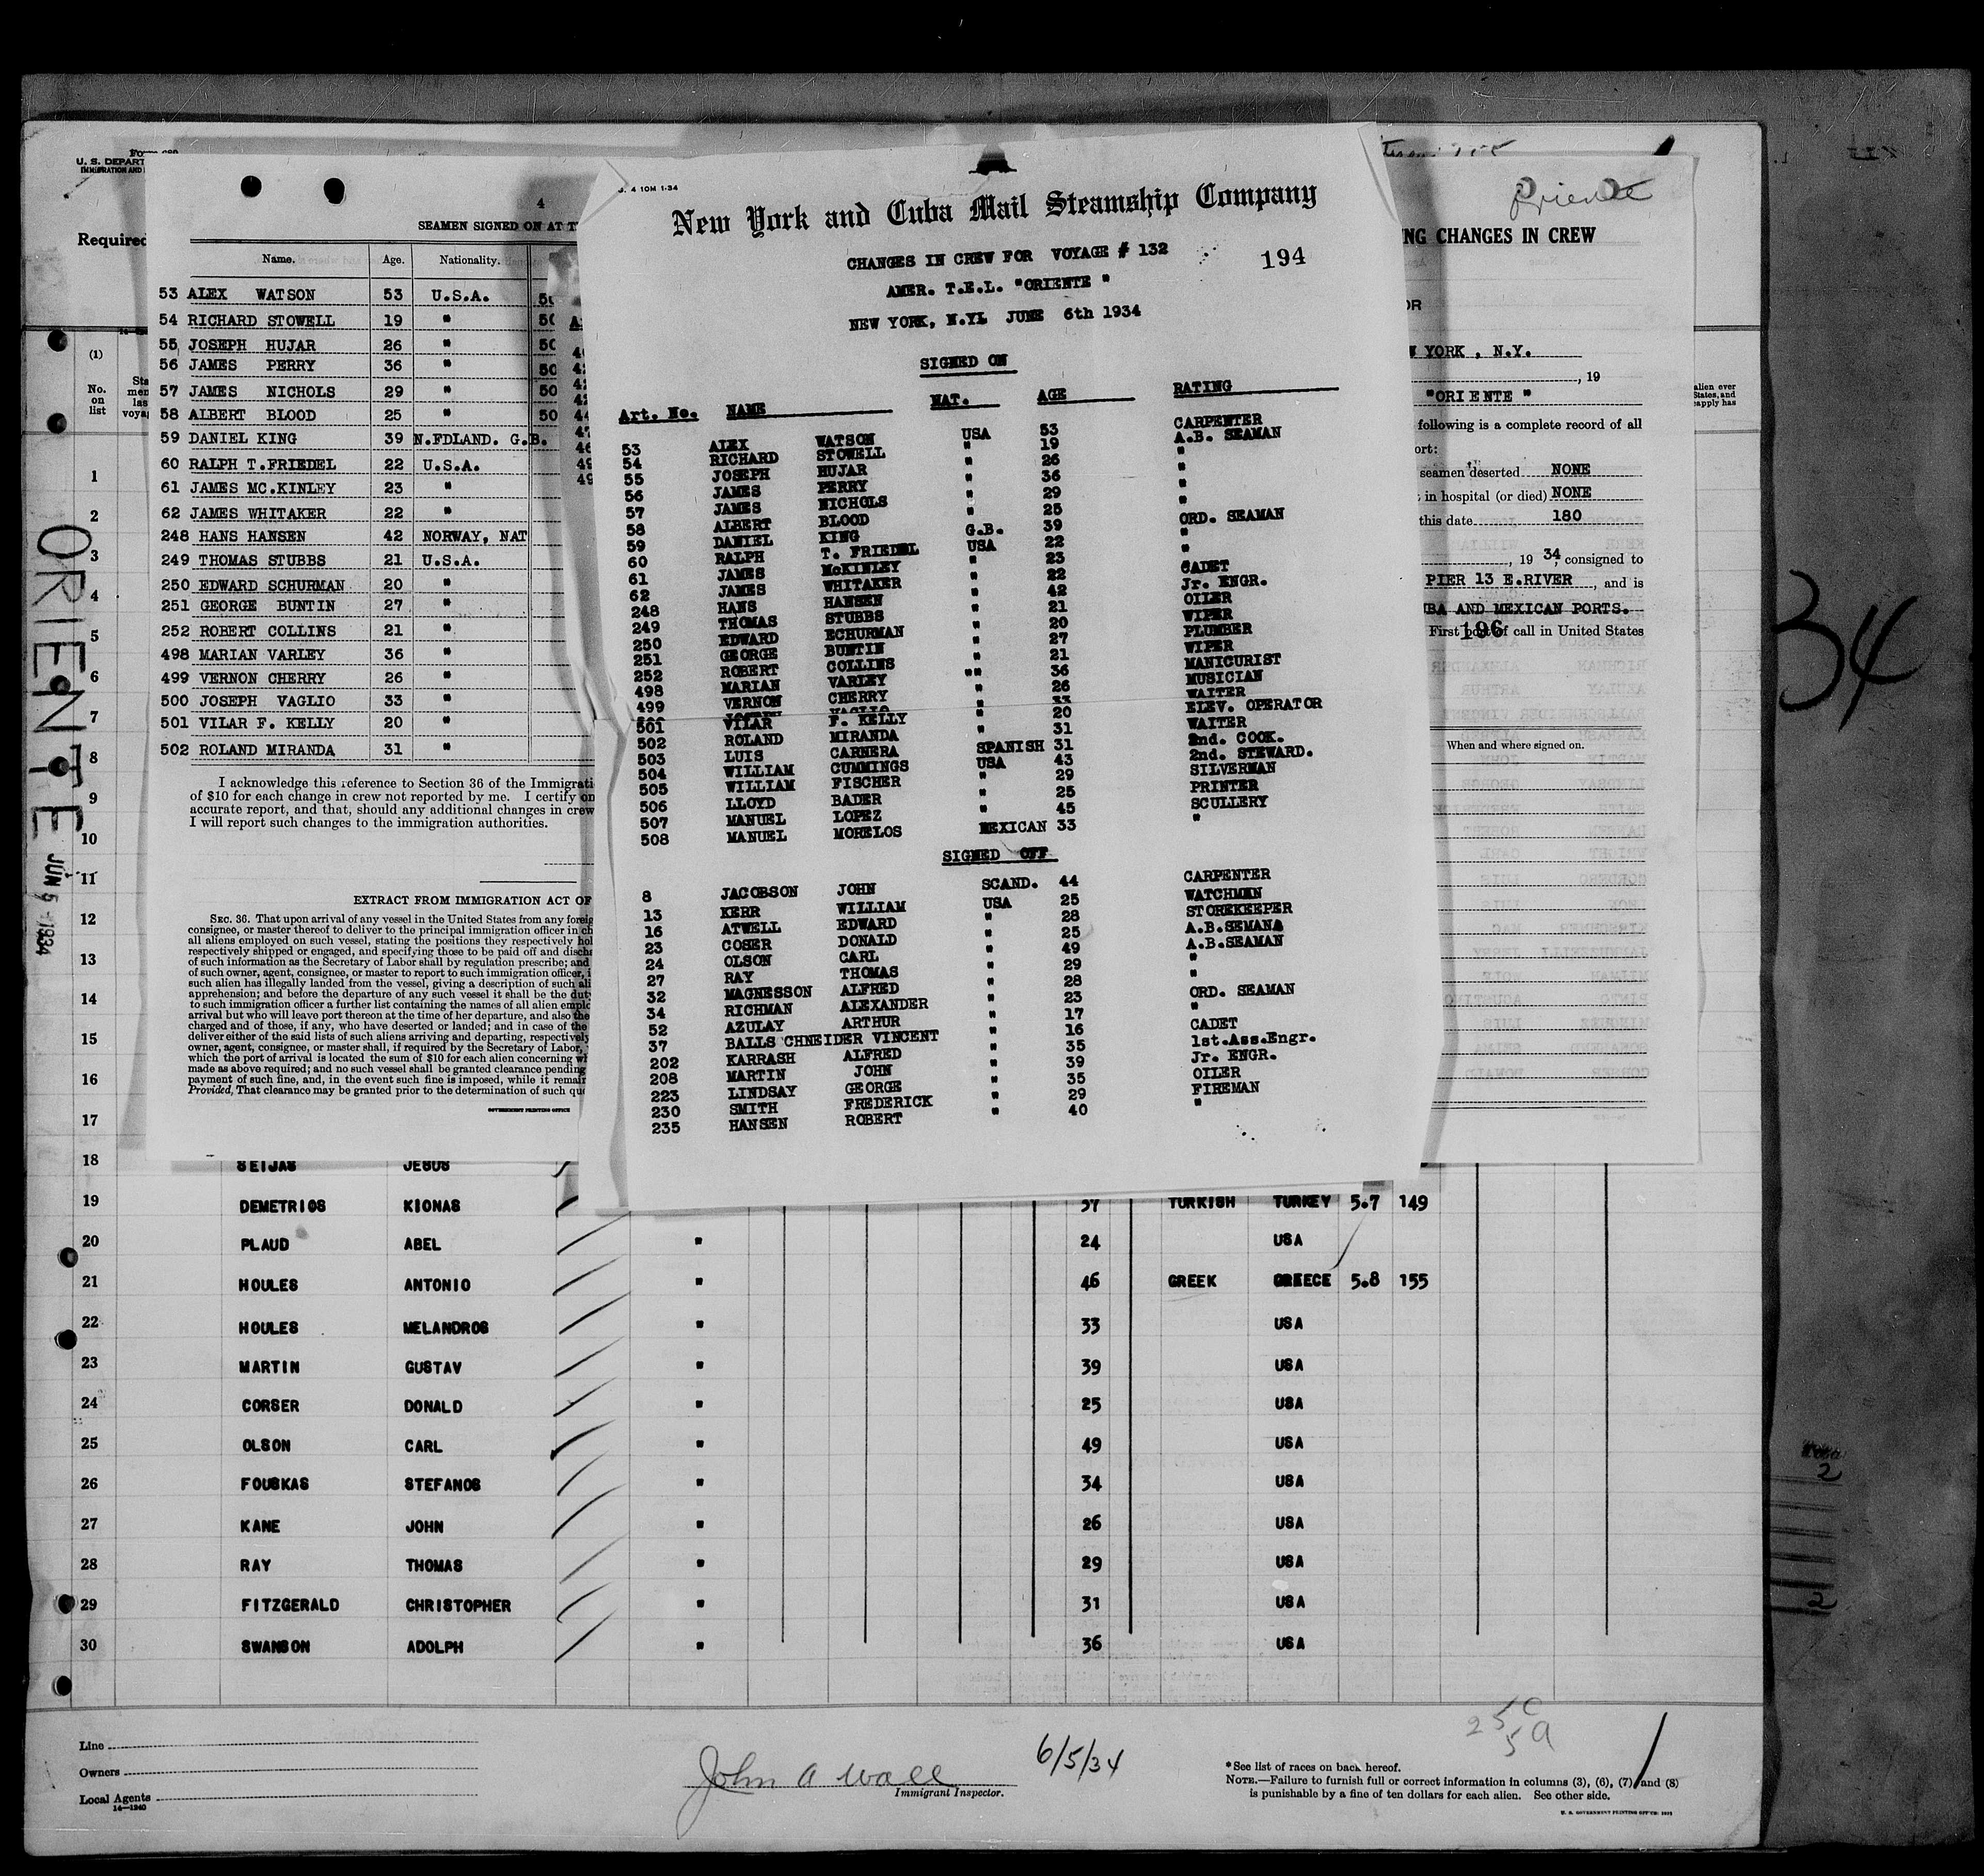 U. S. DEPART
IMMIGRATION AND
Required
(1)
No.
on
list
4
SEAMEN SIGNED ON AT T
Name. Age. Nationality.
53 ALEX WATSON 53 U.S.A.
54 RICHARD STOWELL 19 "
55 JOSEPH HUJAR 26 "
56 JAMES PERRY 36 "
57 JAMES NICHOLS 29 "
58 ALBERT BLOOD 25 "
59 DANIEL KING 39 N.FDLAND. G.B.
60 RALPH T.FRIEDEL 22 U.S.A.
61 JAMES MC.KINLEY 23 "
62 JAMES WHITAKER 22 "
248 HANS HANSEN 42 NORWAY, NAT
249 THOMAS STUBBS 21 U.S.A.
250 EDWARD SCHURMAN 20 "
251 GEORGE BUNTIN 27 "
252 ROBERT COLLINS 21 "
498 MARIAN VARLEY 36 "
499 VERNON CHERRY 26 "
500 JOSEPH VAGLIO 33 "
501 VILAR F. KELLY 20 "
502 ROLAND MIRANDA 31 "
I acknowledge this reference to Section 36 of the Immigrati
of $10 for each change in crew not reported by me. I certify on
accurate report, and that, should any additional changes in crew
I will report such changes to the immigration authorities.
EXTRACT FROM IMMIGRATION ACT OF
SEC. 36. That upon arrival of any vessel in the United States from any foreig
consignee, or master thereof to deliver to the principal immigration officer in ch
all aliens employed on such vessel, stating the positions they respectively hol
respectively shipped or engaged, and specifying those to be paid off and disch
of such information as the Secretary of Labor shall by regulation prescribe; and
of such owner, agent, consignee, or master to report to such immigration officer, i
such alien has illegally landed from the vessel, giving a description of such ali
apprehension; and before the departure of any such vessel it shall be the dut
to such immigration officer a further list containing the names of all alien emplo
arrival but who will leave port thereon at the time of her departure, and also the
charged and of those, if any, who have deserted or landed; and in case of the
deliver either of the said lists of such aliens arriving and departing, respectively
owner, agent, consignee, or master shall, if required by the Secretary of Labor,
which the port of arrival is located the sum of $10 for each alien concerning w
made as above required; and no such vessel shall be granted clearance pending
payment of such fine, and, in the event such fine is imposed, while it remain
Provided, That clearance may be granted prior to the determination of such qu
GOVERNMENT PRINTING OFFICE
4 10M 1-34
New York and Cuba Mail Steamship Company
CHANGES IN CREW FOR VOYAGE # 132
194
AMER. T.E.L. "ORIENTE "
NEW YORK, N.YL JUNE 6th 1934
SIGNED ON
Art. No. NAME NAT. AGE RATING
53 ALEX WATSON USA 53 CARPENTER
54 RICHARD STOWELL " 19 A.B. SEAMAN
55 JOSEPH HUJAR " 26 "
56 JAMES PERRY " 36 "
57 JAMES NICHOLS " 29 "
58 ALBERT BLOOD " 25 "
59 DANIEL KING G.B. 39 ORD. SEAMAN
60 RALPH T. FRIEDEL USA 22 "
61 JAMES McKINLEY " 23 "
62 JAMES WHITAKER " 22 CADET
248 HANS HANSEN " 42 Jr. ENGR.
249 THOMAS STUBBS " 21 OILER
250 EDWARD ECHURMAN " 20 WIPER
251 GEORGE BUNTIN " 27 PLUMBER
252 ROBERT COLLINS " 21 WIPER
498 MARIAN VARLEY "" 36 MANICURIST
499 VERNON CHERRY " 26 MUSICIAN
VAGLIO " 33 WAITER
501 VILAR F. KELLY " 20 ELEV. OPERATOR
502 ROLAND MIRANDA " 31 WAITER
503 LUIS CARNERA SPANISH 31 2nd. COOK.
504 WILLIAM CUMMINGS USA 43 2nd. STEWARD.
505 WILLIAM FISCHER " 29 SILVERMAN
506 LLOYD BADER " 25 PRINTER
507 MANUEL LOPEZ " 45 SCULLERY
508 MANUEL MORELOS MEXICAN 33 "
SIGNED OFF
8 JACOBSON JOHN SCAND. 44 CARPENTER
13 KERR WILLIAM USA 25 WATCHMEN
16 ATWELL EDWARD " 28 STOREKEEPER
23 COSER DONALD " 25 A.B.SEMANA
24 OLSON CARL " 49 A.B.SEAMAN
27 RAY THOMAS " 29 "
32 MAGNESSON ALFRED " 28 "
34 RICHMAN ALEXANDER " 23 ORD. SEAMAN
52 AZULAY ARTHUR " 17 "
37 BALLS CHNEIDER VINCENT " 16 CADET
202 KARRASH ALFRED " 35 1st.Ass.Engr.
208 MARTIN JOHN " 39 Jr. ENGR.
223 LINDSAY GEORGE " 35 OILER
230 SMITH FREDERICK " 29 FIREMAN
235 HANSEN ROBERT " 40 "
Oriente
NG CHANGES IN CREW
OR
YORK , N.Y.
, 19
"ORIENTE "
following is a complete record of all
ort:
seamen deserted NONE
in hospital (or died) NONE
this date 180
, 19 34, consigned to
PIER 13 E.RIVER , and is
UBA AND MEXICAN PORTS.
196
First port of call in United States
When and where signed on.
alien ever
States, and
apply has
34
ORIENTE
JUN 5 1934
1
2
3
4
5
6
7
8
9
10
11
12
13
14
15
16
17
18 SEIJAS JESUS
19 DEMETRIOS KIONAS 37 TURKISH TURKEY 5.7 149
20 PLAUD ABEL " 24 USA
21 HOULES ANTONIO " 46 GREEK GREECE 5.8 155
22 HOULES MELANDROS " 33 USA
23 MARTIN GUSTAV " 39 USA
24 CORSER DONALD " 25 USA
25 OLSON CARL " 49 USA
26 FOUSKAS STEFANOS " 34 USA
27 KANE JOHN " 26 USA
28 RAY THOMAS " 29 USA
29 FITZGERALD CHRISTOPHER " 31 USA
30 SWANSON ADOLPH " 36 USA
2
2
Line
Owners
Local Agents
14—1240
John A Wall 6/5/34
Immigrant Inspector.
*See list of races on back hereof.
NOTE.—Failure to furnish full or correct information in columns (3), (6), (7) and (8)
is punishable by a fine of ten dollars for each alien. See other side.